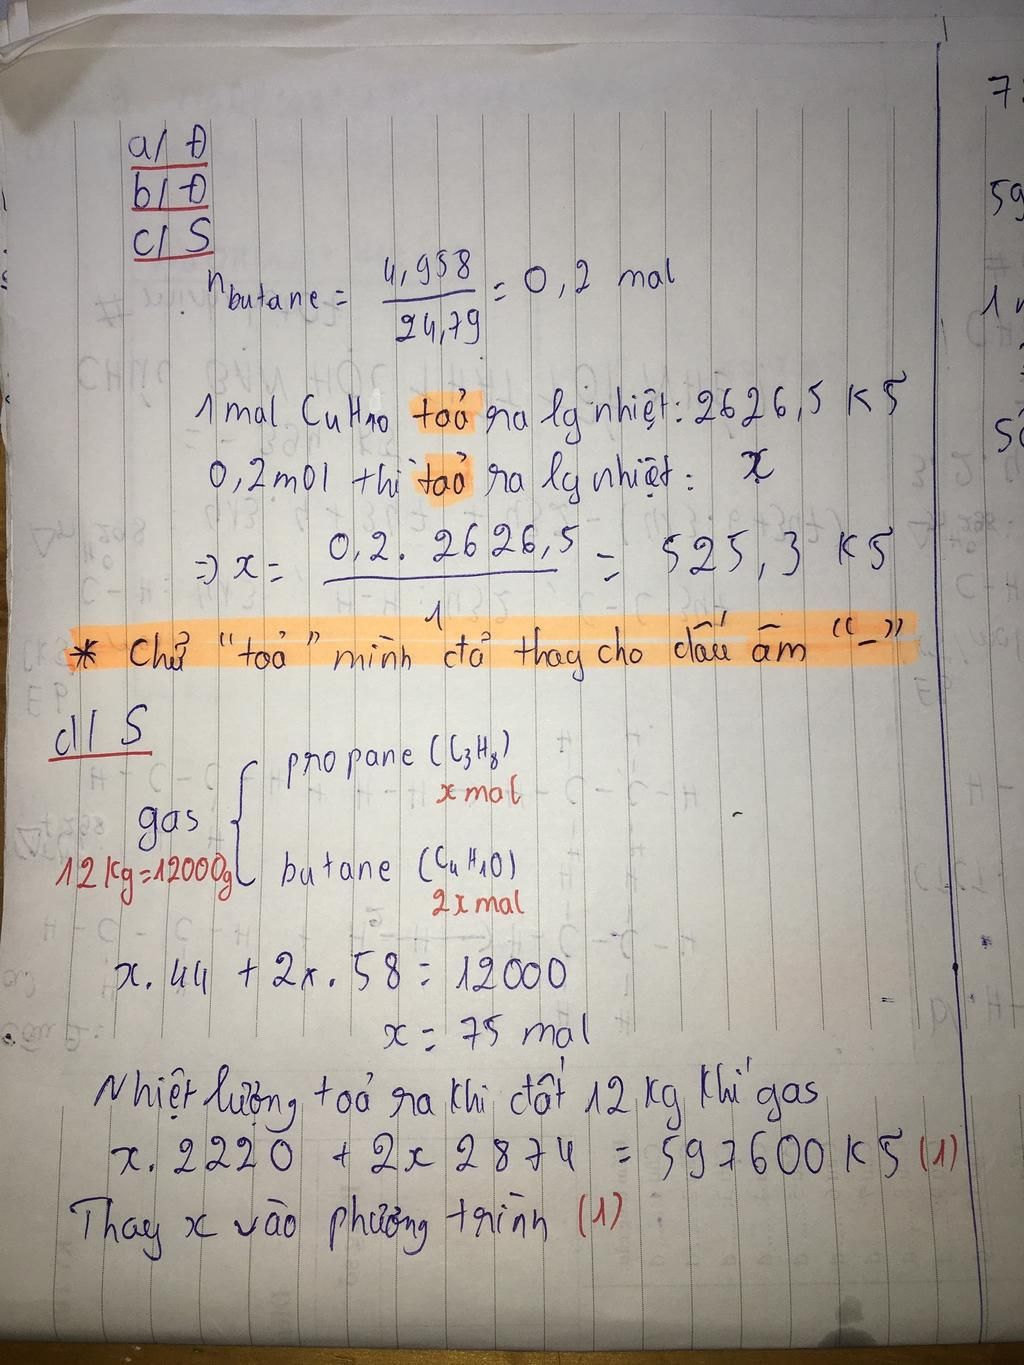 a/ Đ
b/ Đ
c/ S
n butane = 4,958 / 24,79 = 0,2 mol
1 mol C4H10 toả ra lg nhiệt: 2626,5 KJ
0,2 mol thì toả ra lg nhiệt: x
=> x = 0,2. 2626,5 / 1 = 525,3 KJ
* Chữ "toả" mình đã thay cho dấu âm "-"
d/ S
propane (C3H8)
x mol
gas
12 Kg=12000g
butane (C4H10)
2x mol
x. 44 + 2x. 58 = 12000
x = 75 mol
Nhiệt lượng toả ra khi đốt 12 kg khí gas
x. 2220 + 2x 2874 = 597600 KJ (1)
Thay x vào phương trình (1)
7
59
1